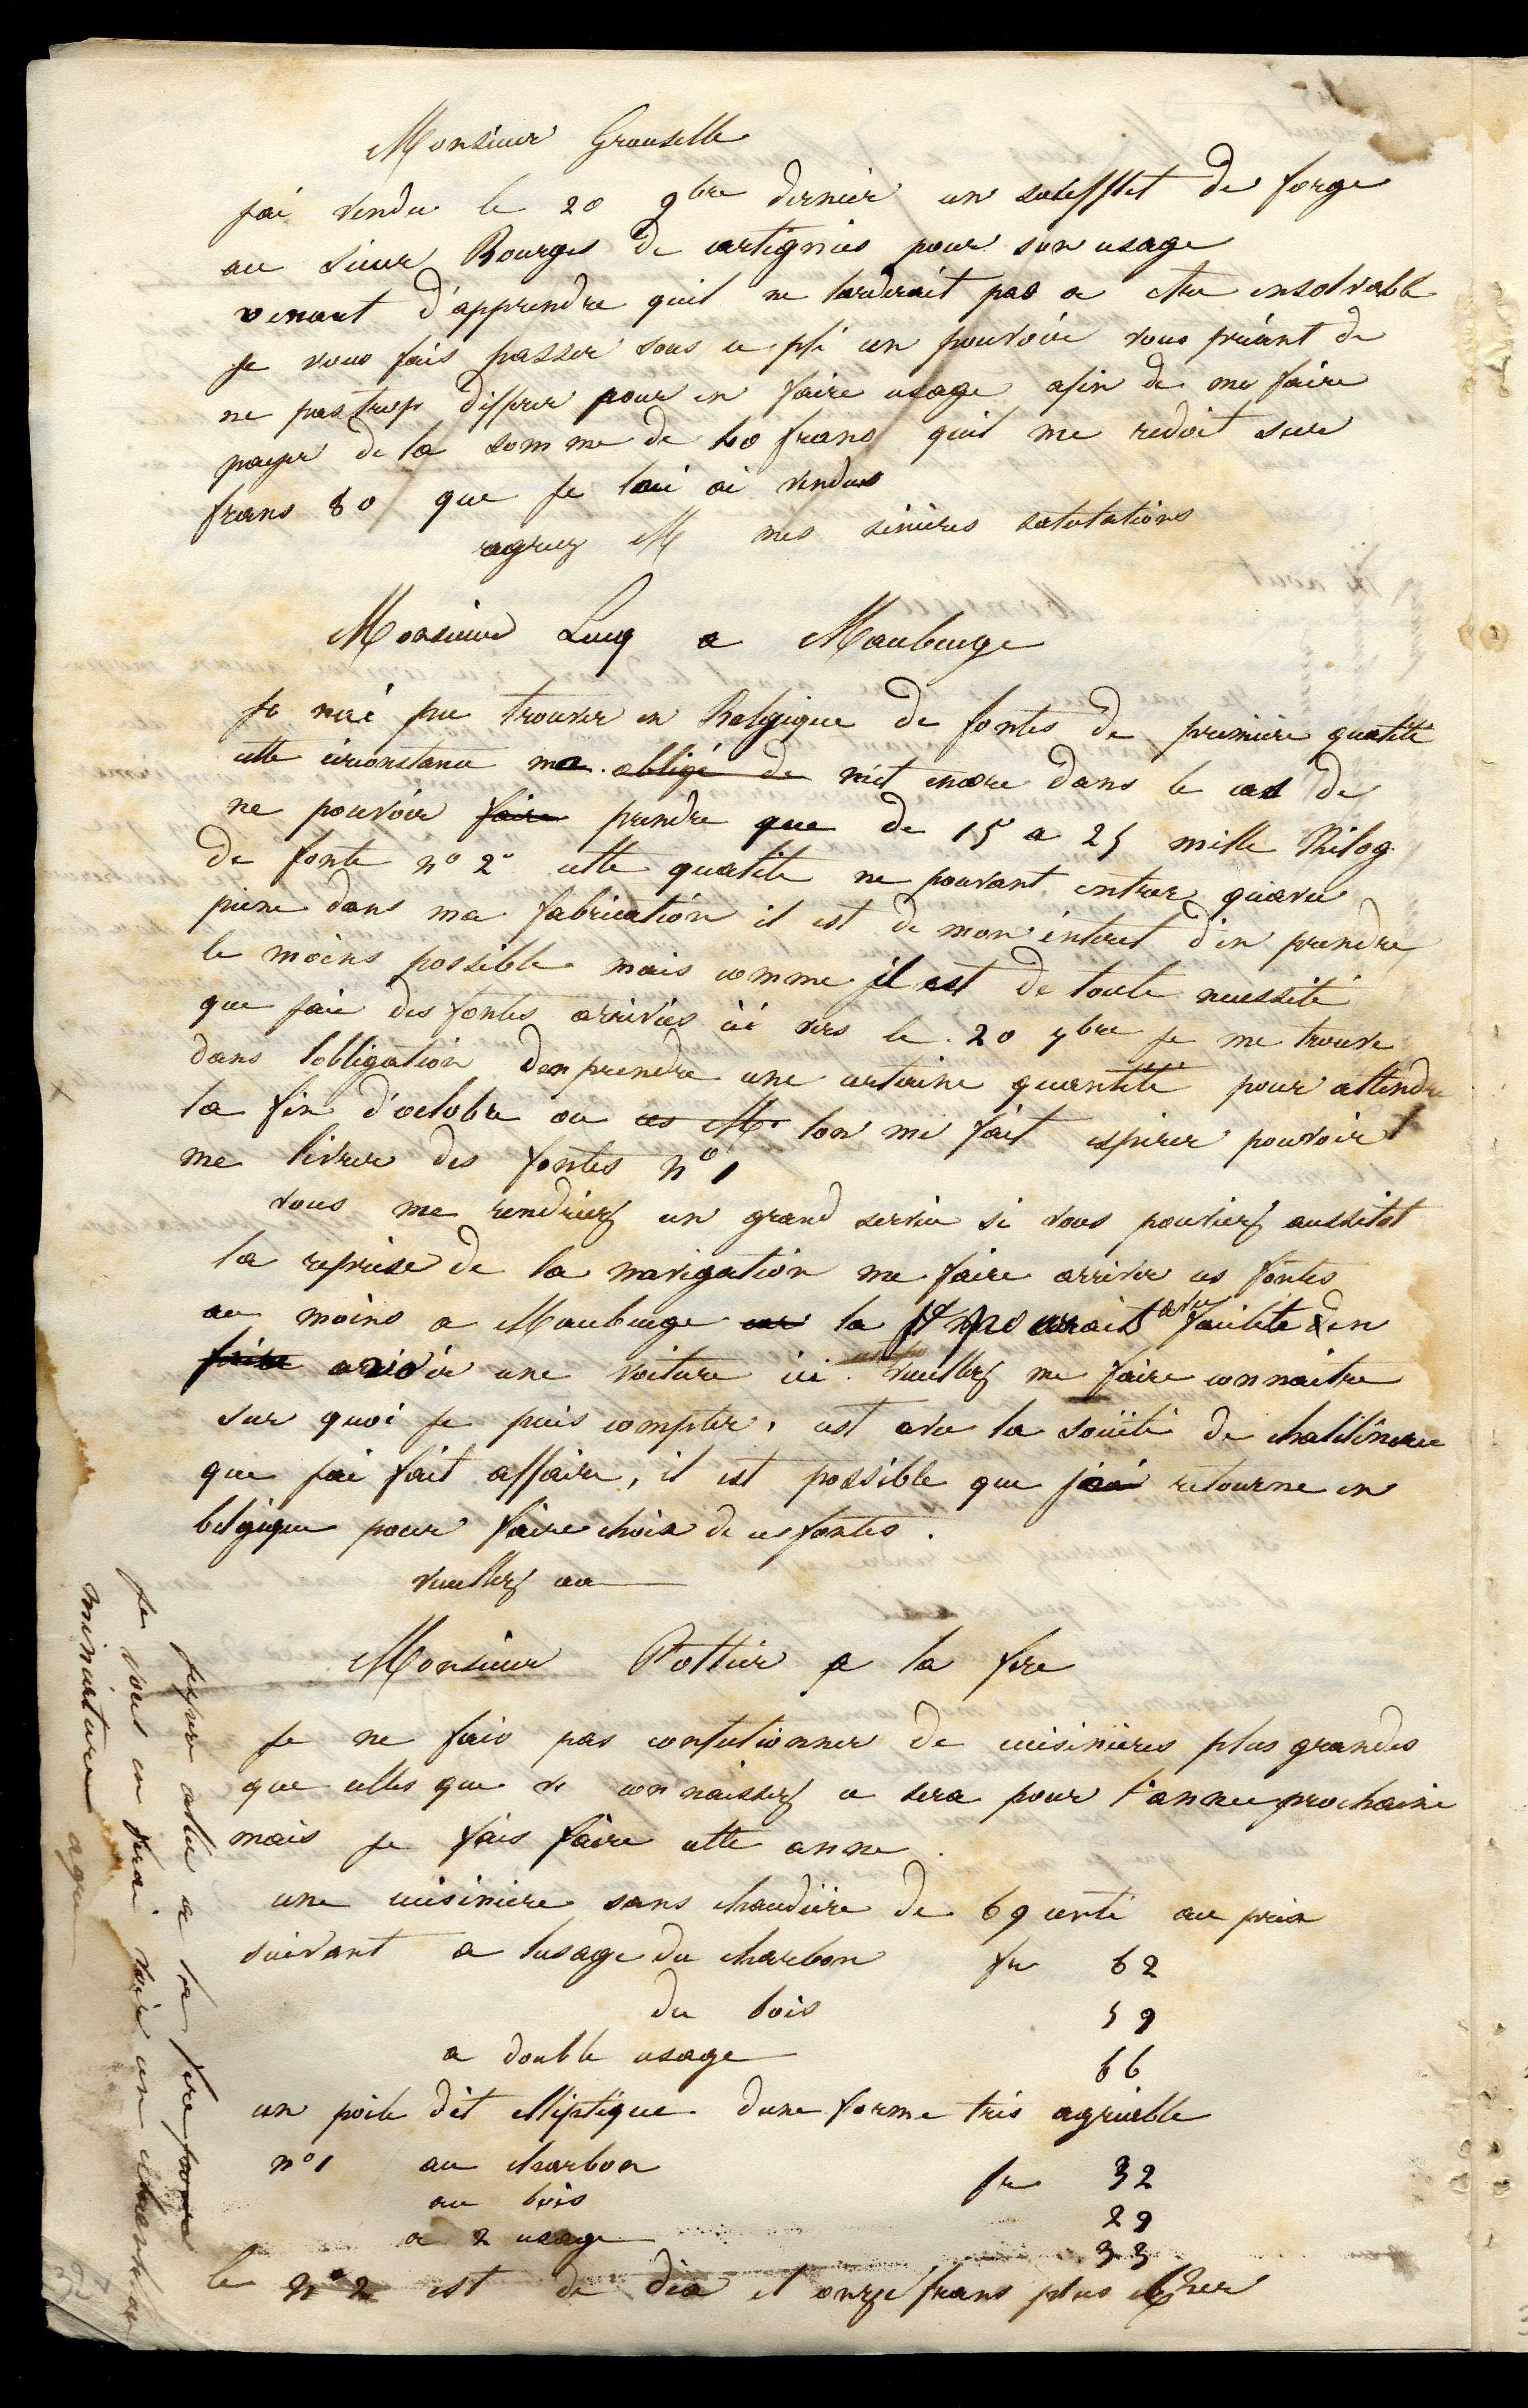 Monsieur Grouselle
jai vendu le 20 9bre dernier un soufflet de forge
au sieur Bourges de cartignies pour son usage
venant d'apprendre quil ne tarderait pas a etre insolvable
je vous fais passer sous ce pli un pouvoir vous priant de
ne pas trop differer pour en faire usage afin de me faire
payer de la somme de 40 francs quil me redoit sur
francs 80 que je lui ai vendus
agreez M mes sinceres salutations
Monsieur Lucq a Maubeuge
je nai pu trouver en Belgique de fontes de premiere qualité
cette circonstance ma obligé de met encore dans le cas de
ne pouvoir faire prendre que de 15 a 25 mille Kilog
de fonte n° 2 cette qualité ne pouvant entrer quavec
peine dans ma fabrication il est de mon interet d'en prendre
le moins possible mais comme il est de toute necessité
que jaie des fontes arrivées ici vers le 20 7bre je me trouve
dans lobligation den prendre une certaine quantité pour attendre
la fin d'octobre ou ces Mrs lon me fait esperer pouvoir
me livrer des fontes n° 1
vous me rendriez un grand service si vous pouviez aussitot
la reprise de la navigation me faire arriver ces fontes
au moins a Maubeuge car la avec facilité den
faire avoir une voiture ici veuillez me faire connaitre
sur quoi je puis compter, cest avec la société de chatelineau
que jai fait affaire, il est possible que jai retourne en
belgique pour faire choix de ces fontes.
veuillez au
Monsieur Pottier a la fere
je ne fais pas confectionner de cuisinieres plus grandes
que celles que v connaissez ce sera pour l'année prochaine
mais je fais faire cette anne
une cuisiniere sans chaudière de 69 centi au prix
suivant a lusage du charbon fr 62
du bois 59
a double usage 66
un poele dit elliptique dune forme très agreable
n° 1 au charbon fr 32
au bois 29
a 2 usage 33
le n° 2 est de dix et onze francs plus cher
jespere aller a la fere pour
je vous en ferai voir un echant
miniature agre